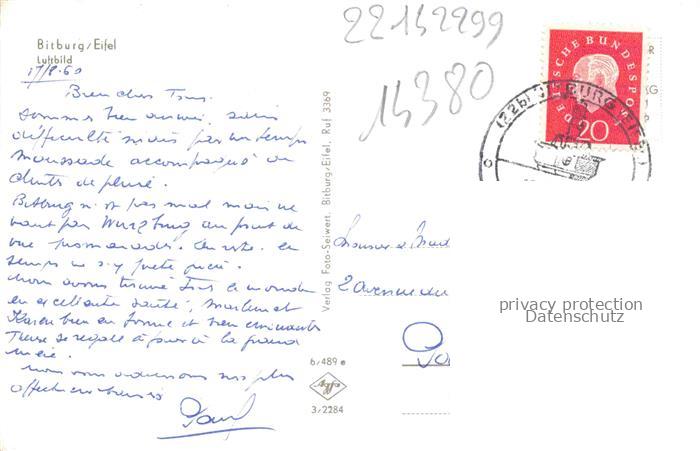 Bitburg/Eifel
Luftbild
17/8.60
22142299
14380
Bien chers Tous.
Sommes bien arrivé, sans
difficulté mais par un temps
maussade accompagné de
chutes de pluie.
Bitburg n'est pas mal mais ne
vaut pas Wurzburg au point de
vue promenades. Du reste le
temps ne s'y prête guère.
Nous avons trouvé tout le monde
en excellente santé,
Karen bien en forme et bien
se régale à jouer à la grand
mère.
nous vous adressons nos plus
affectueux baisers
Paul
Verlag Foto-Seiwert, Bitburg/Eifel, Ruf 3369
6/489 e
Agfa
3/2284
DEUTSCHE BUNDESPOST
20
(22b) BITBURG
Monsieur et Mad
2 avenue du
privacy protection
Datenschutz